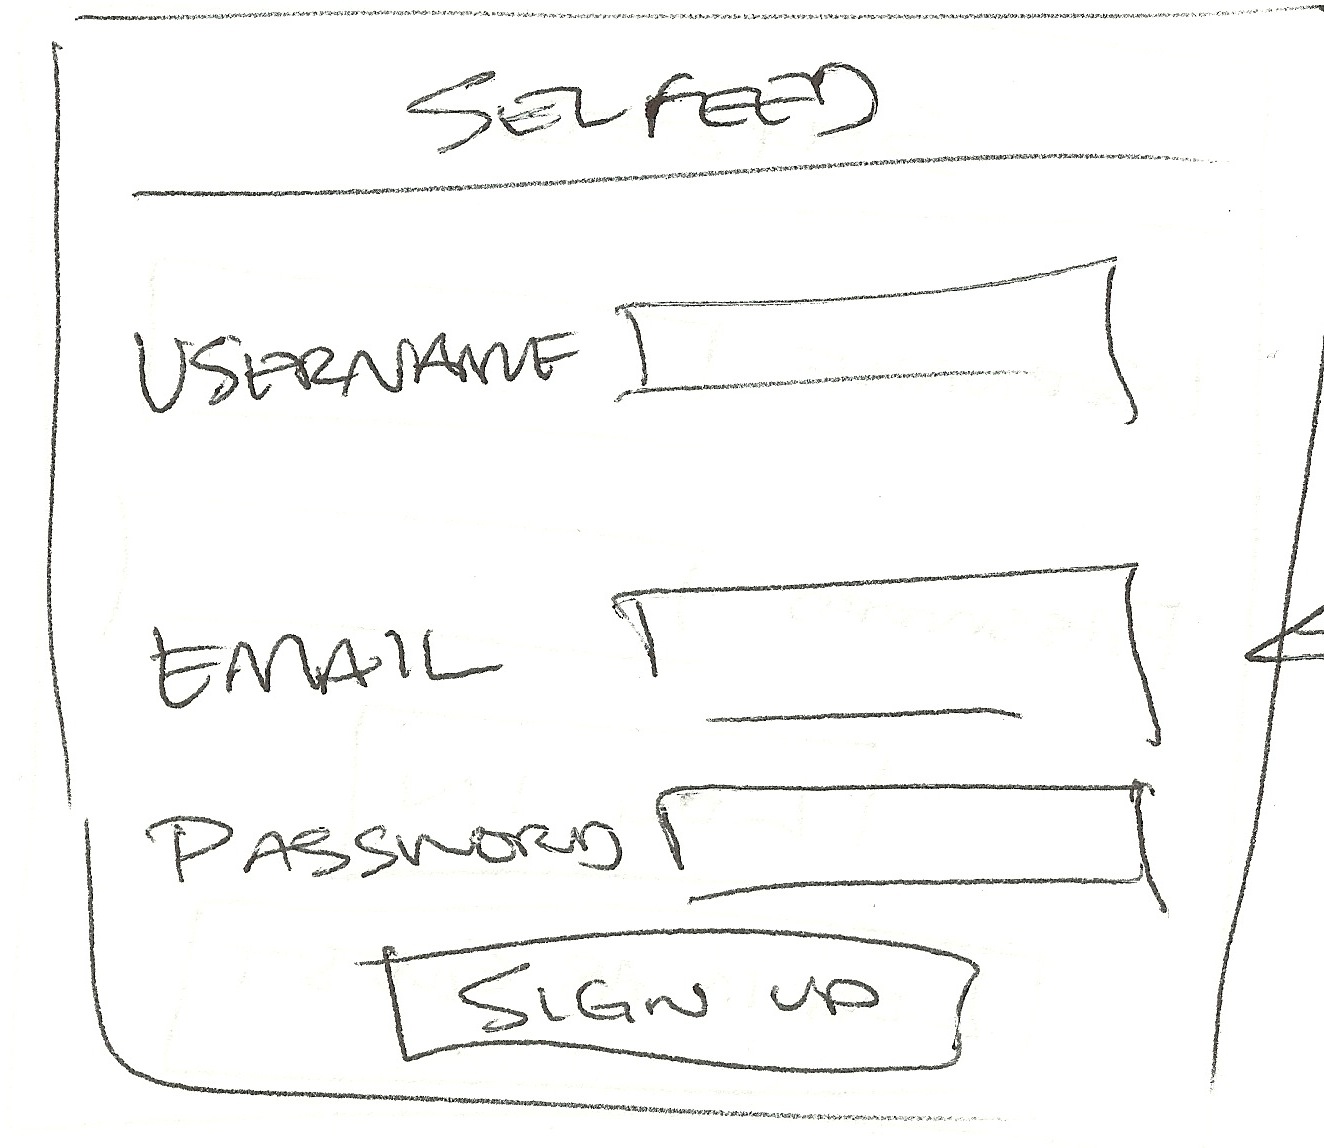 SELFEED
USERNAME
EMAIL
PASSWORD
SIGN UP